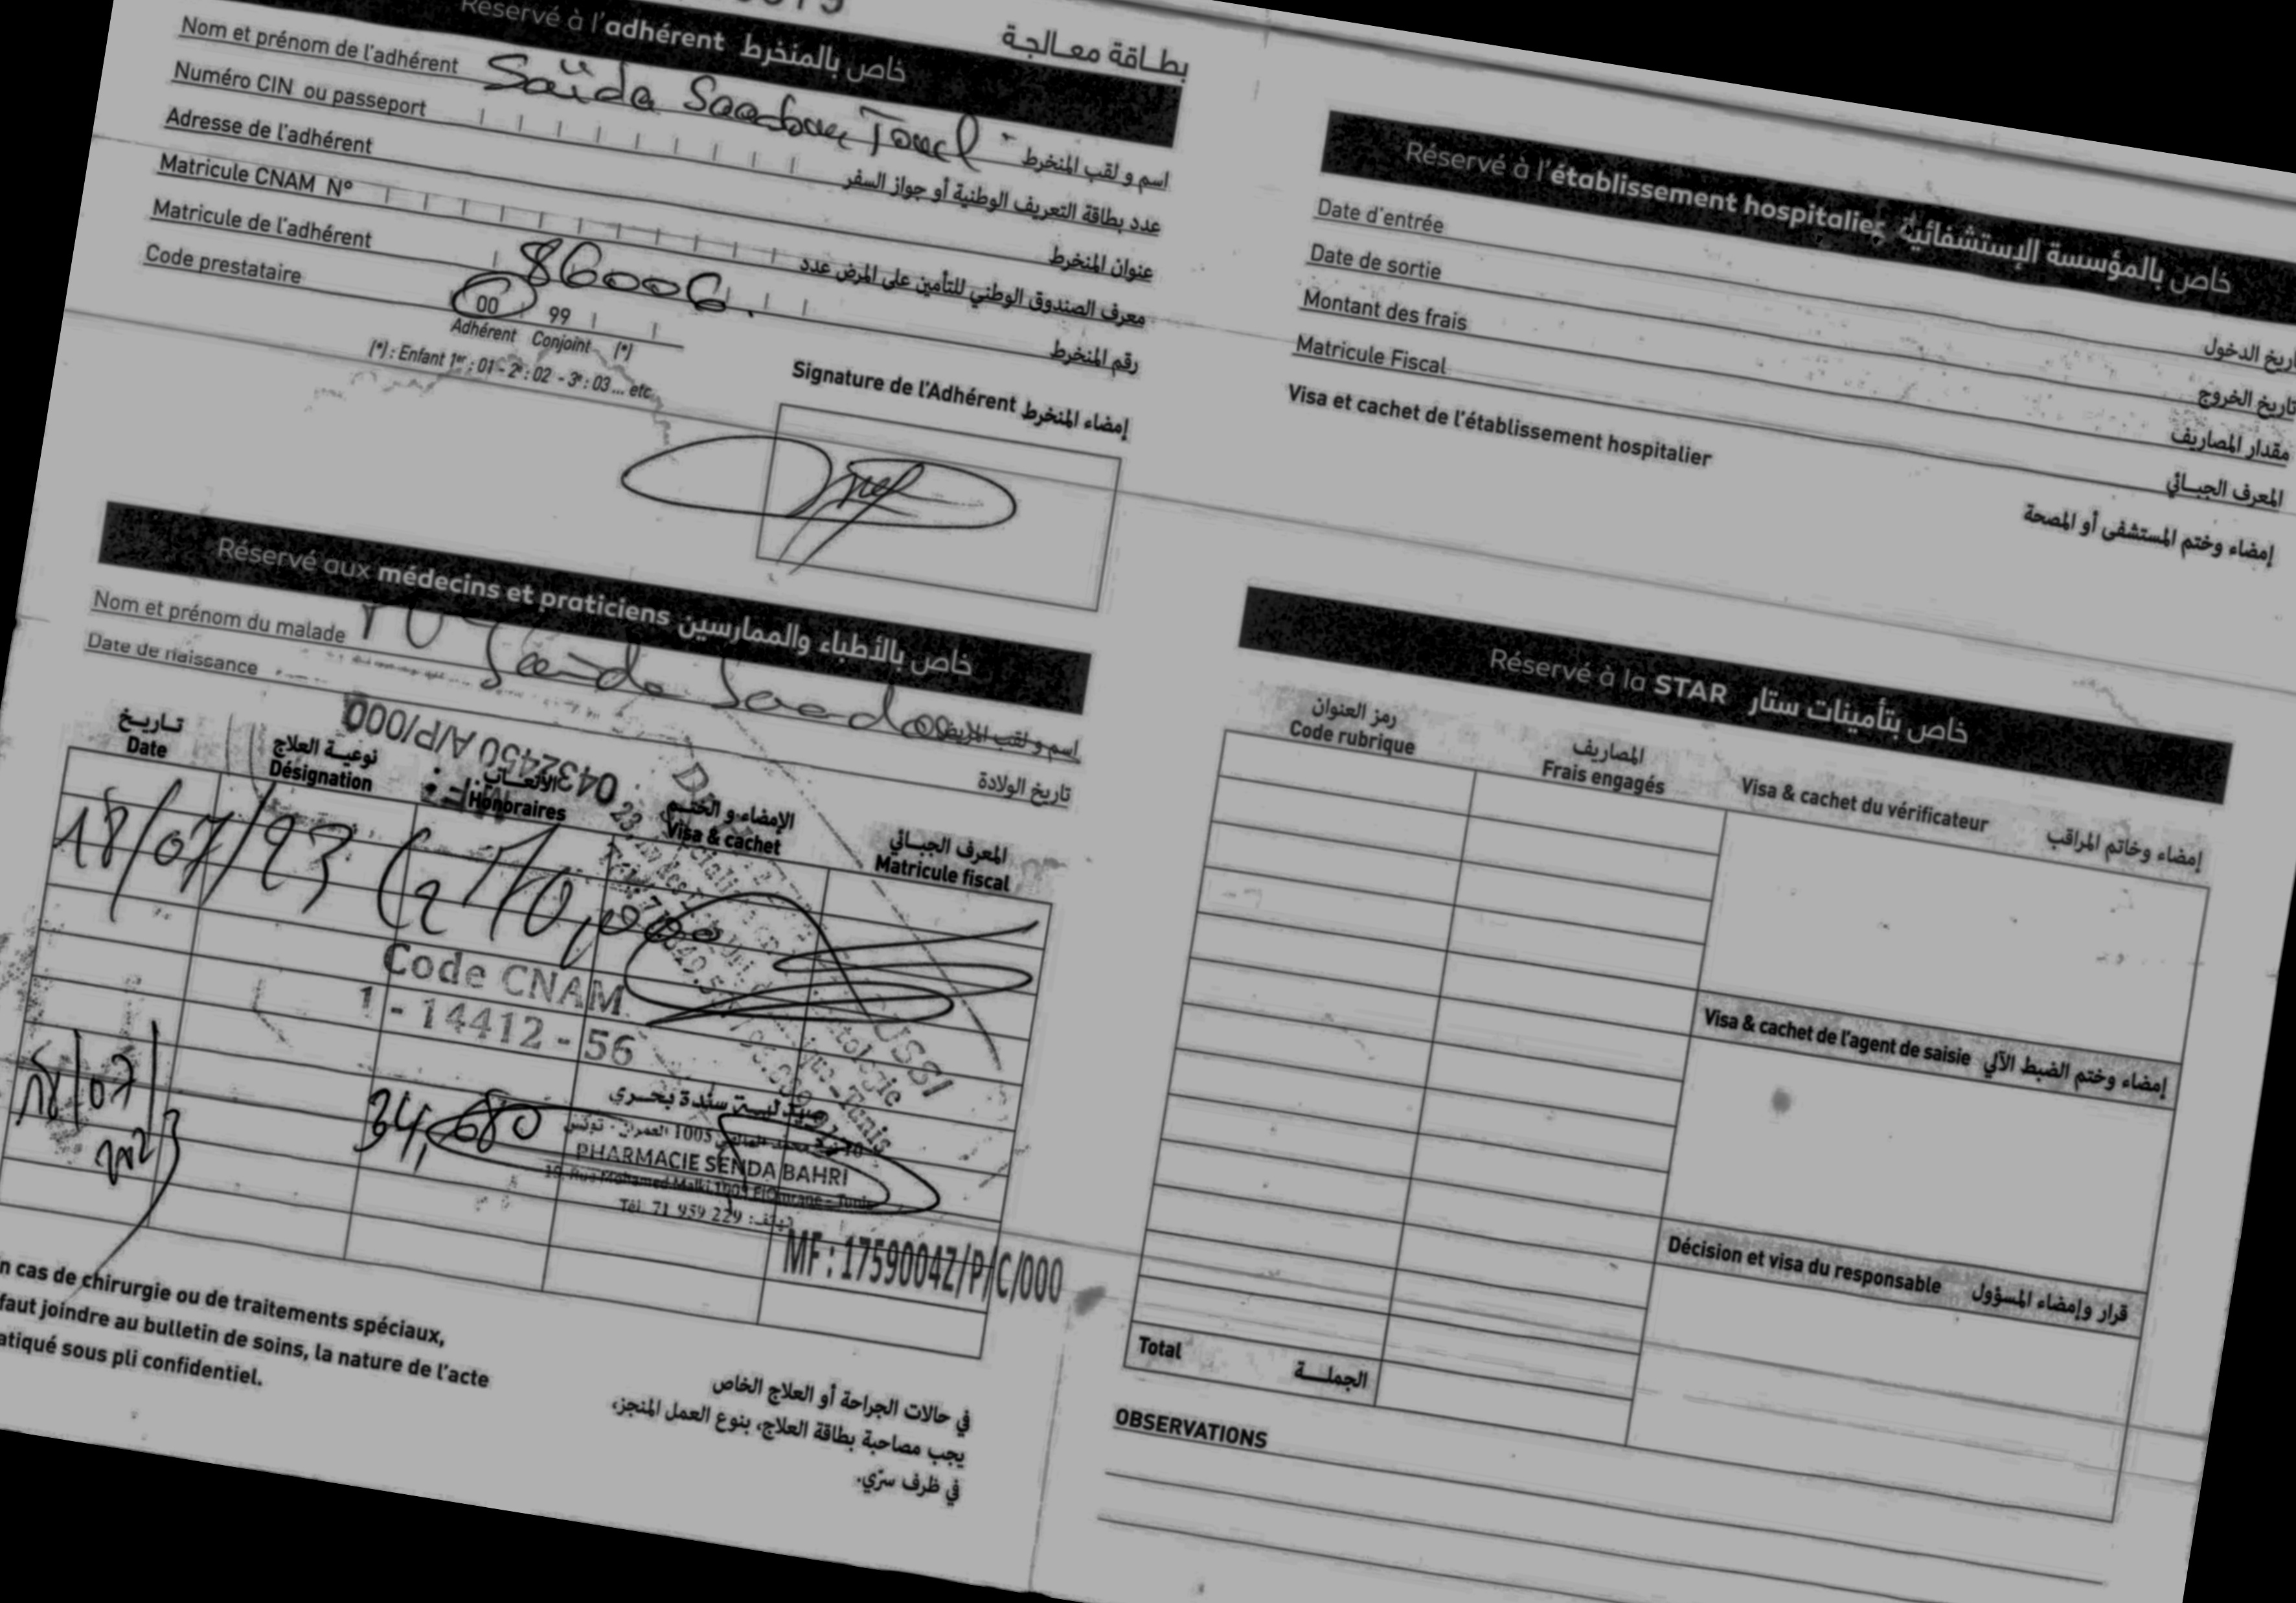 بطـاقة معـالجـة
Réservé à l'adhérent خاص بالمنخرط
Nom et prénom de l'adhérent Saïda اسم و لقب المنخرط
Numéro CIN ou passeport عدد بطاقة التعريف الوطنية أو جواز السفر
Adresse de l'adhérent عنوان المنخرط
Matricule CNAM N° معرف الصندوق الوطني للتأمين على المرض عدد
Matricule de l'adhérent 86006 رقم المنخرط
Code prestataire 00 99
Adhérent Conjoint (*)
(*) : Enfant 1er : 01 - 2e : 02 - 3e : 03 ... etc
Signature de l'Adhérent إمضاء المنخرط
Réservé aux médecins et praticiens خاص بالأطباء والممارسين
Nom et prénom du malade Saida اسم و لقب المريض
Date de naissance تاريخ الولادة
0432450 A/P/000
تـاريـخ نوعيـة العلاج الأتعـاب الإمضاء و الختـم المعرف الجبـائي
Date Désignation Honoraires Visa & cachet Matricule fiscal
18/07/23 C2 70,000
Code CNAM
1 - 14412 - 56
18/07/2023 34,680
صيدليـة سندة بحـري
PHARMACIE SENDA BAHRI
10, Rue Mohamed Malki 1005 El Omrane - Tunis
Tél. 71 959 229
MF : 1759004Z/P/C/000
n cas de chirurgie ou de traitements spéciaux,
faut joindre au bulletin de soins, la nature de l'acte
atiqué sous pli confidentiel.
في حالات الجراحة أو العلاج الخاص
يجب مصاحبة بطاقة العلاج، بنوع العمل المنجز،
في ظرف سرّي.
Réservé à l'établissement hospitalier خاص بالمؤسسة الإستشفائية
Date d'entrée اريخ الدخول
Date de sortie تاريخ الخروج
Montant des frais مقدار المصاريف
Matricule Fiscal المعرف الجبـائي
Visa et cachet de l'établissement hospitalier إمضاء وختم المستشفى أو المصحة
Réservé à la STAR خاص بتأمينات ستار
رمز العنوان المصاريف
Code rubrique Frais engagés Visa & cachet du vérificateur إمضاء وخاتم المراقب
Visa & cachet de l'agent de saisie إمضاء وختم الضبط الآلي
Décision et visa du responsable قرار وإمضاء المسؤول
Total الجملـــة
OBSERVATIONS